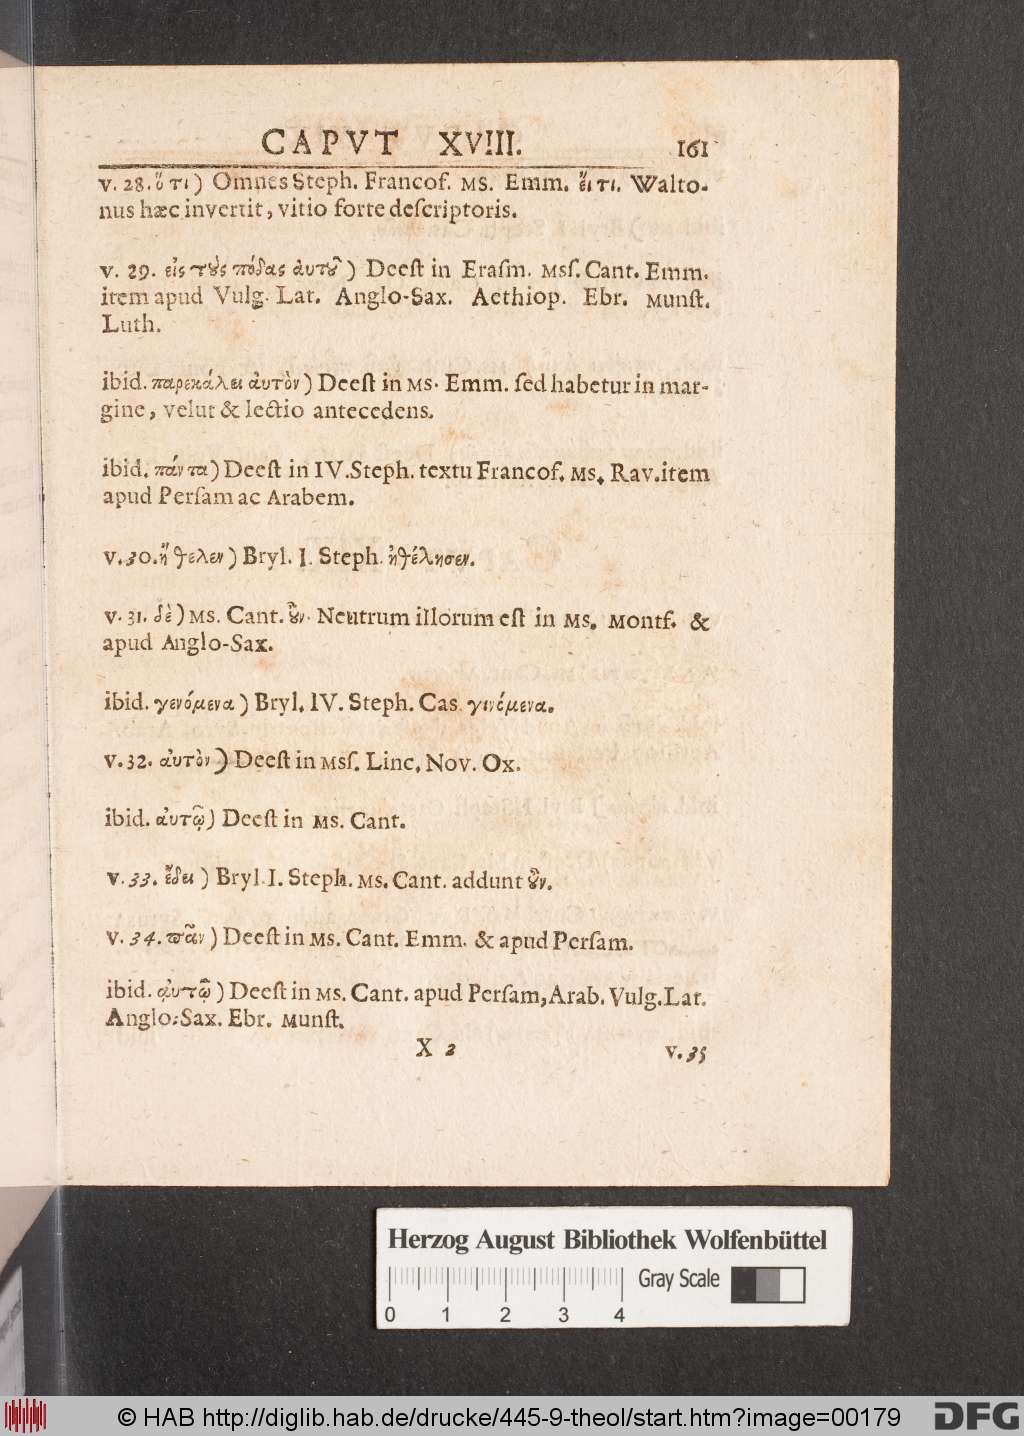 CAPVT XVIII. 161
v. 28. ὅ τι) Omnes Steph. Francof. Ms. Emm. εἴ τι. Walto-
nus hæc invertit, vitio forte deſcriptoris.
v. 29. εἰς τοὺς πόδας ἀυτοῦ) Deeſt in Eraſm. Mſſ. Cant. Emm.
item apud Vulg. Lat. Anglo-Sax. Aethiop. Ebr. Munſt.
Luth.
ibid. παρεκάλει ἀυτὸν) Deeſt in Ms. Emm. ſed habetur in mar-
gine, velut & lectio antecedens.
ibid. πάντα) Deeſt in IV. Steph. textu Francof. Ms. Rav. item
apud Perſam ac Arabem.
v. 30. ἤθελεν) Bryl. I. Steph. ἠθέλησεν.
v. 31. δὲ) Ms. Cant. οὖν. Neutrum illorum eſt in Ms. Montf. &
apud Anglo-Sax.
ibid. γενόμενα) Bryl. IV. Steph. Cas. γινόμενα.
v. 32. ἀυτὸν) Deeſt in Mſſ. Linc. Nov. Ox.
ibid. ἀυτῷ) Deeſt in Ms. Cant.
v. 33. ἔδει) Bryl. I. Steph. Ms. Cant. addunt οὖν.
v. 34. πᾶν) Deeſt in Ms. Cant. Emm. & apud Perſam.
ibid. ἀυτῷ) Deeſt in Ms. Cant. apud Perſam, Arab. Vulg. Lat.
Anglo-Sax. Ebr. Munſt.
X 2 v. 35
Herzog August Bibliothek Wolfenbüttel
Gray Scale
0 1 2 3 4
© HAB http://diglib.hab.de/drucke/445-9-theol/start.htm?image=00179 DFG